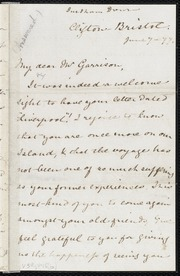 Durdham Down
Clifton Bristol
June 7 - 77
My dear Mr Garrison,
It was indeed a welcome
sight to have your letter dated
Liverpool! I rejoice to know
that you are once more on our
Island, & that the voyage has
not been one of so much suffering
as your former experiences. It is
most kind of you to come again
amongst your old friends. We
feel grateful to you for giving
us the happiness of seeing you